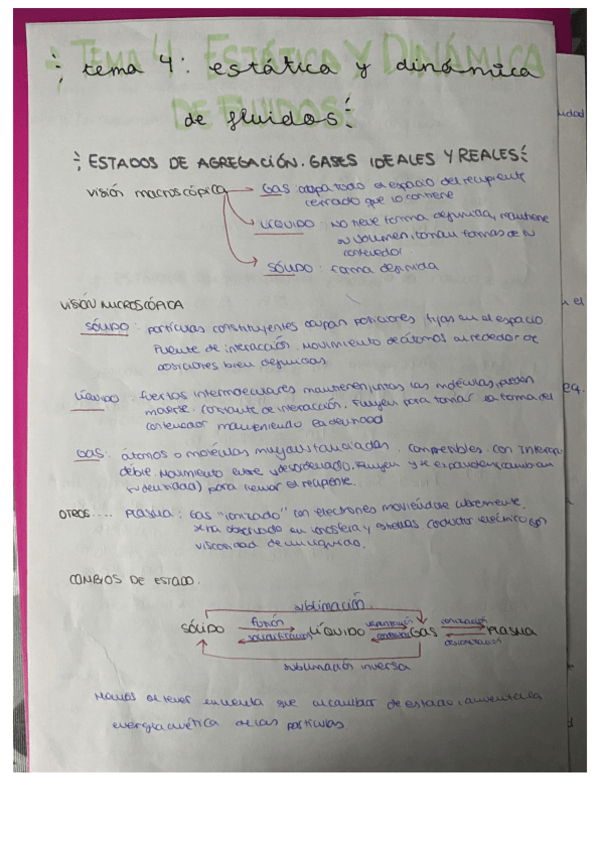 TEMA 4: ESTÁTICA Y DINÁMICA
tema 4: estática y dinámica
DE FLUIDOS
de fluidos
ESTADOS DE AGREGACIÓN. GASES IDEALES Y REALES
visión macroscópica
GAS ocupa todo el espacio del recipiente
cerrado que lo contiene
LÍQUIDO: No tiene forma definida, mantiene
su volumen, toman formas de su
contenedor
SÓLIDO: forma definida
VISIÓN MICROSCÓPICA
SÓLIDO: partículas constituyentes ocupan posiciones fijas en el espacio
Fuente de interacción. Movimiento de átomos alrededor de
posiciones bien definidas
LÍQUIDO: fuerzas intermoleculares mantienen juntas las moléculas, pueden
moverse. constante de interacción. Fluyen para tomar la forma del
contenedor manteniendo la densidad
GAS: átomos o moléculas muy distanciadas. compresibles con
débil. Movimiento libre y desordenado. Fluyen y se expanden (cambian
su densidad) para llenar el recipiente.
OTROS.... PLASMA: Gas "ionizado" con electrones moviéndose libremente.
se ha observado en ionosfera y estrellas conductor eléctrico con
viscosidad de un líquido.
CAMBIOS DE ESTADO.
sublimación
SÓLIDO fusión solidificación LÍQUIDO GAS ionización PLASMA
sublimación inversa
de tener en cuenta que al cambiar de estado, aumenta la
energía cinética de las partículas
idad
el
eq.